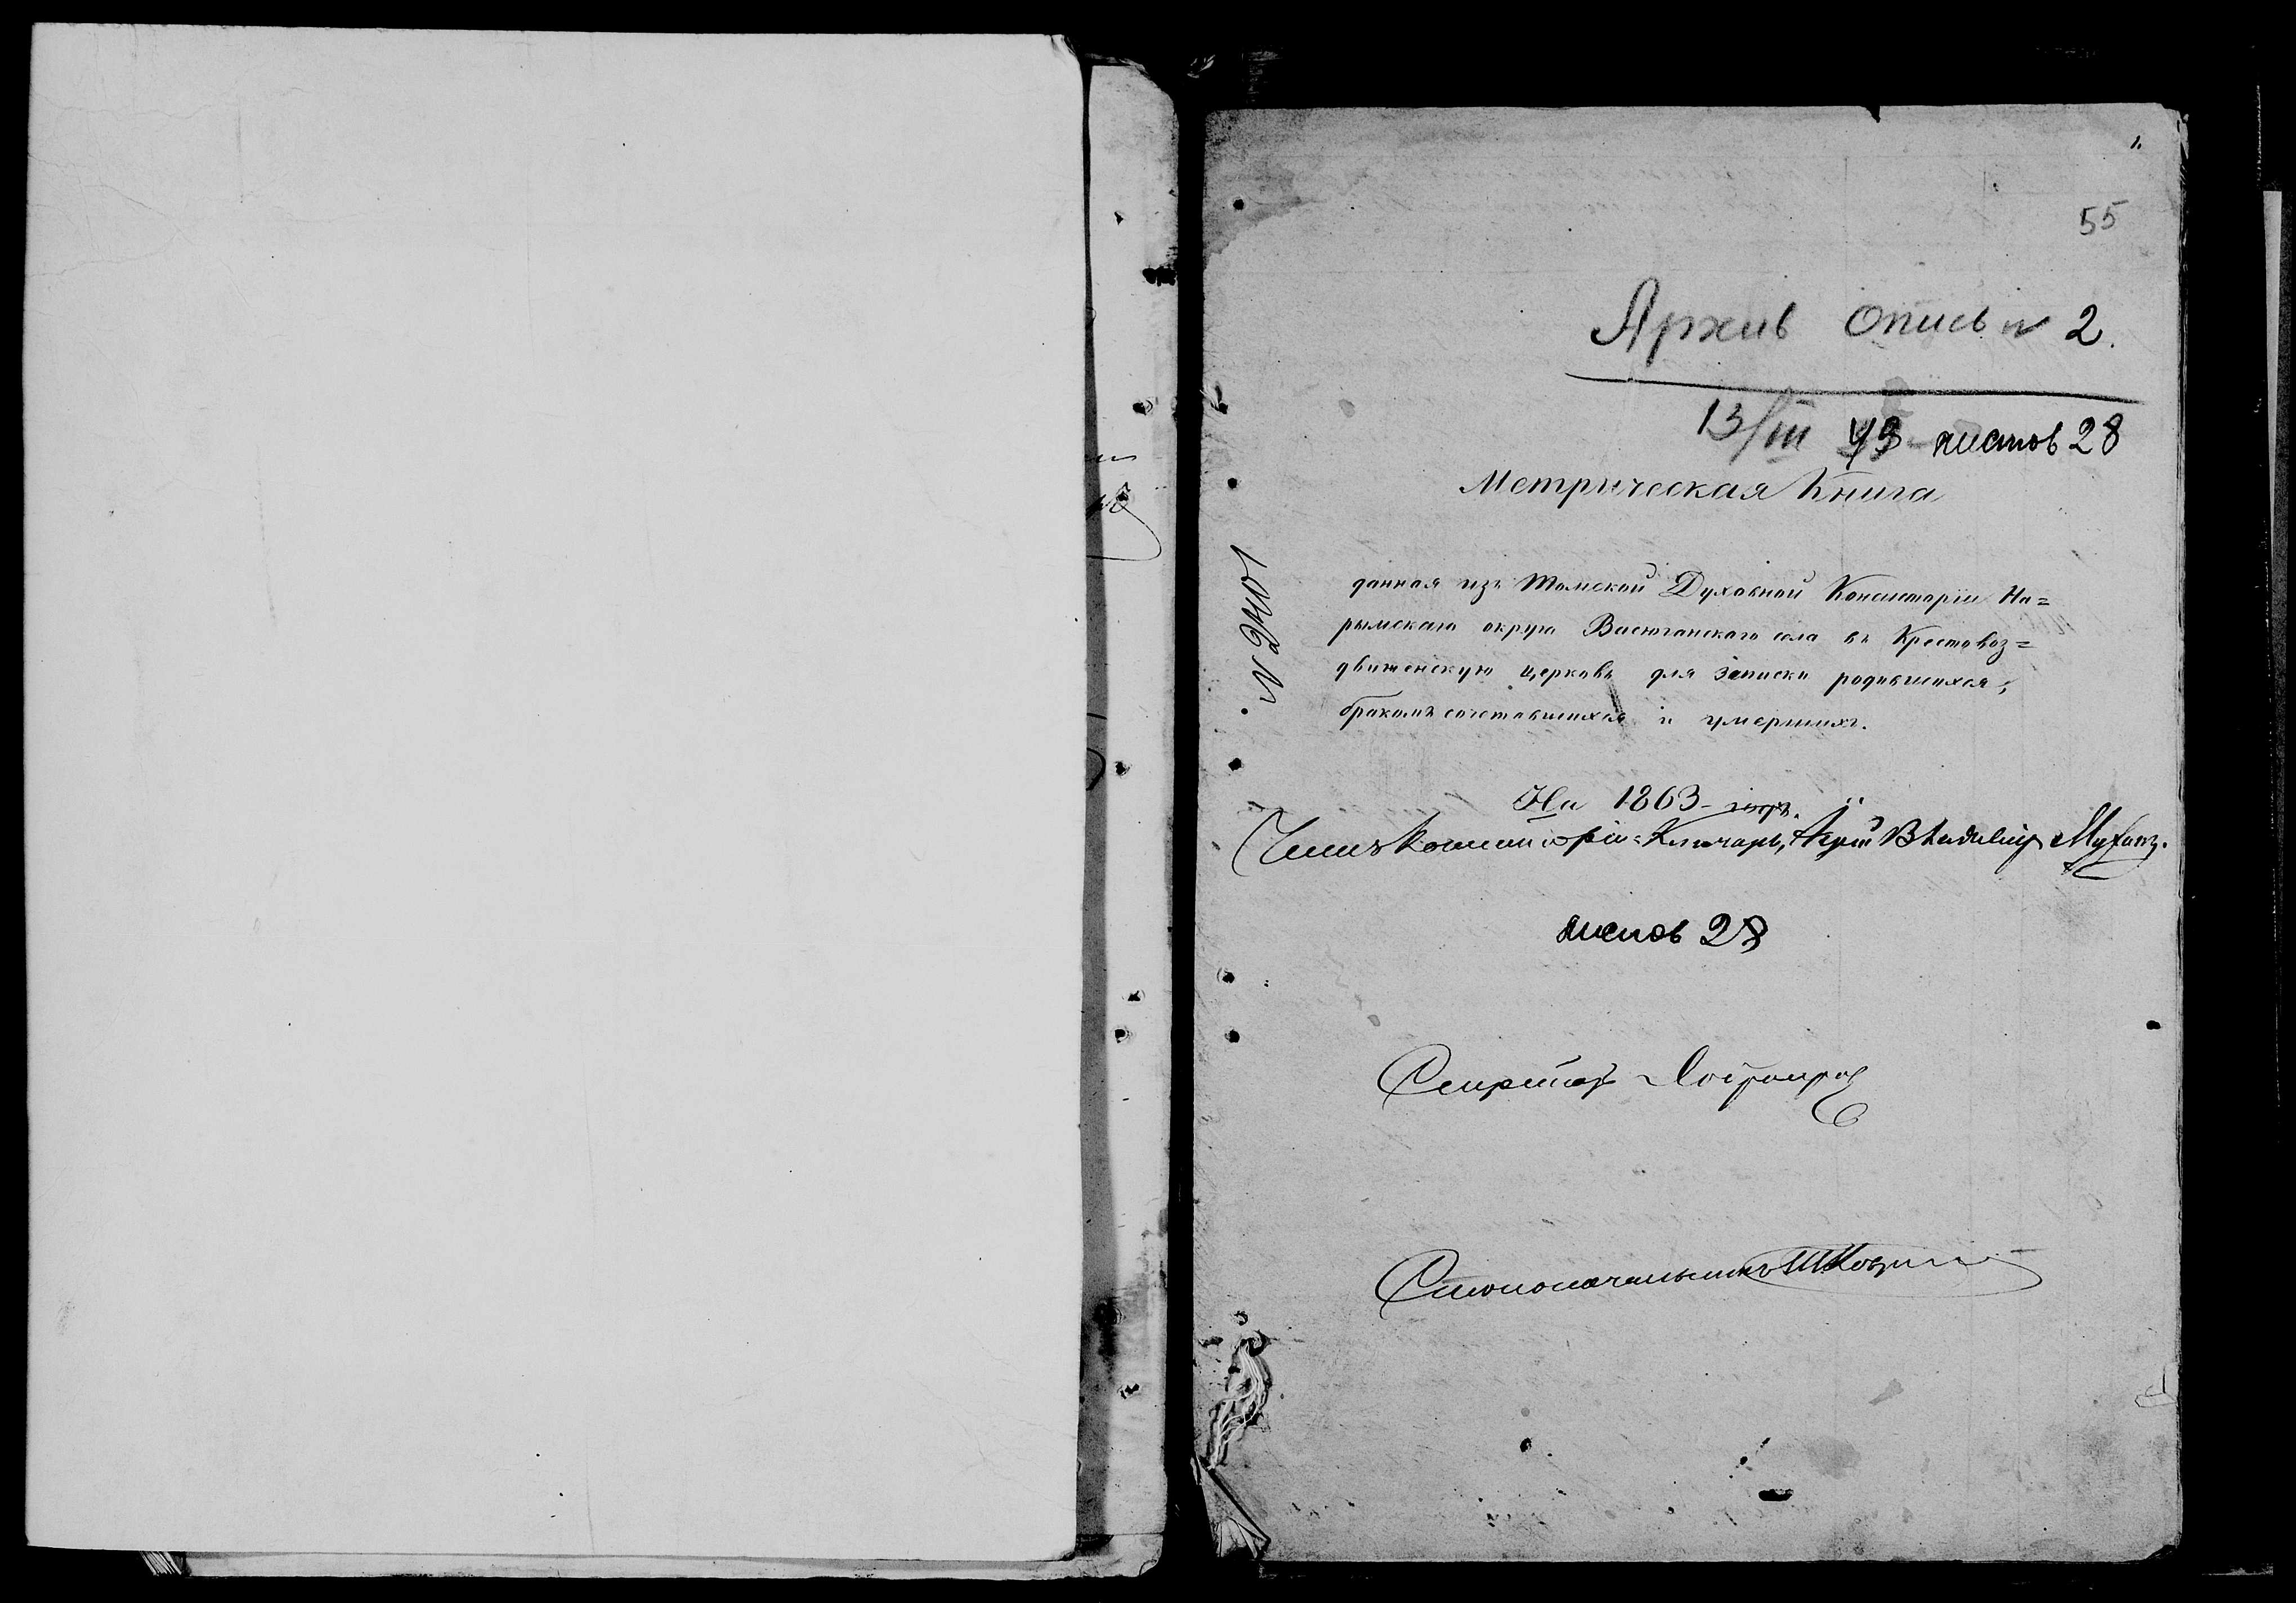 1.
55
Архив Опись № 2.
13/III 43 листов 28
Метрическая Книга
№ 2401
данная изъ Томской Духовной Консисторіи На=
рымскаго округа Васюганскаго села въ Крестовоз=
движенскую церковь для записки родившихся,
бракомъ сочетавшихся и умершихъ.
На 1863 годъ.
Членъ Консисторіи Ключарь, Іерей Владиміръ
листов 28
Секретарь
Столоначальникъ